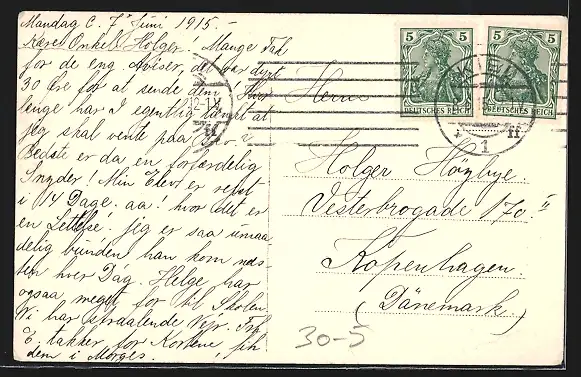 Mandag d. 7' Juni 1915.-
Kære Onkel Holger. Mange Tak
for de eng. Aviser, det var dyrt
30 Øre for at sende dem. Hvor
længe har I egentlig tænkt at
jeg skal vente paa
Bedste er da en forfærdelig
Snyder! Min Elev er rejst
i 14 Dage. aa! hvor det er
en Lettelse! jeg er saa umaa-
delig bunden han kom næs-
ten hver Dag. Helge har
ogsaa meget for til Skolen.
Vi har straalende Vejr.
E. takker for Kortene, fik
dem i Morges.
5 5
DEUTSCHES REICH
5 5
DEUTSCHES REICH
KIEL
12-1 N
ff
1
ff
Herrn
Holger Höybye.
Vesterbrogade 170. II
Kopenhagen.
(Dänemark.)
30-5